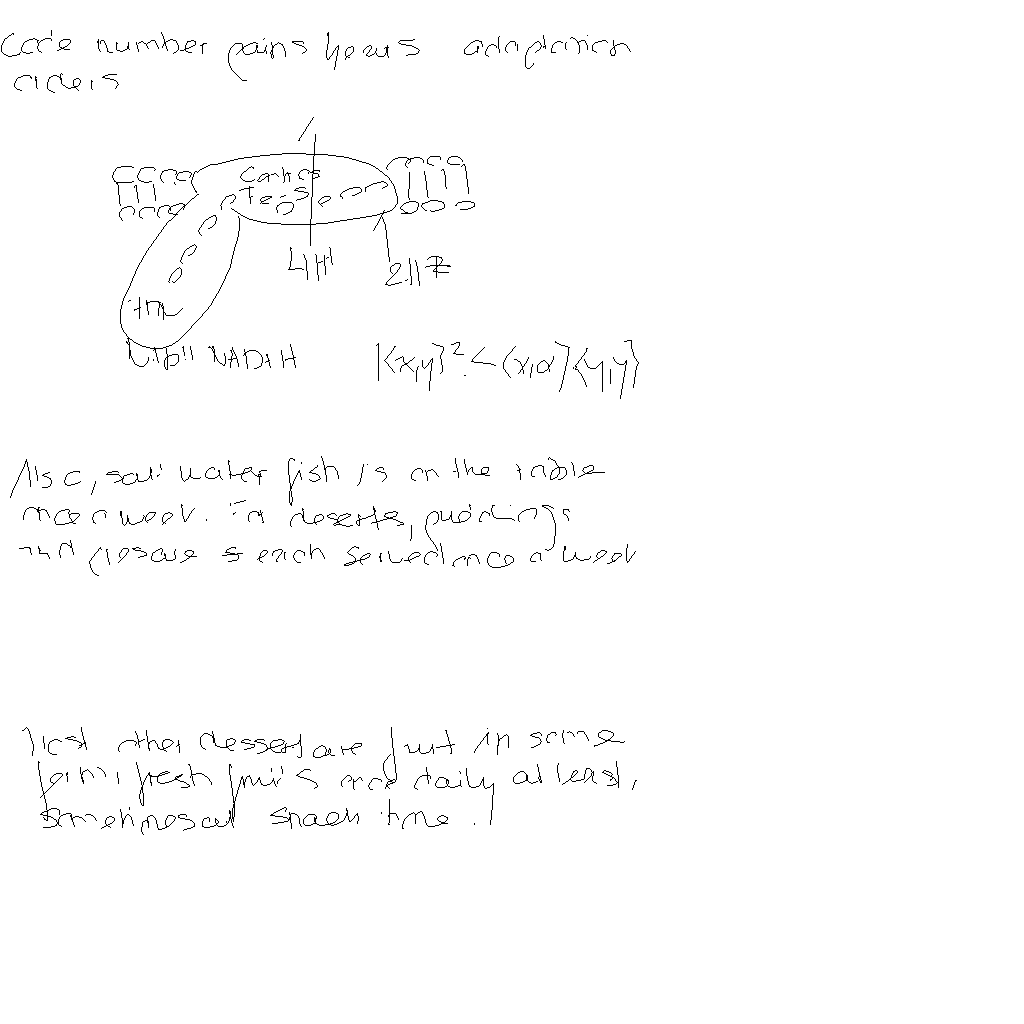 Code number pains yezus adaptation
aiders
Complex
Fe-S
4H+
FMN
NADH
|<x,y>|² ≤ <x,x><y,y>
Also, salt water fish is on the table
once a week. For deserts, puddings
and are each served once a week
Most other dessert are fruit in some
form, fresh fruits once daily at least,
sometimes at snack time.